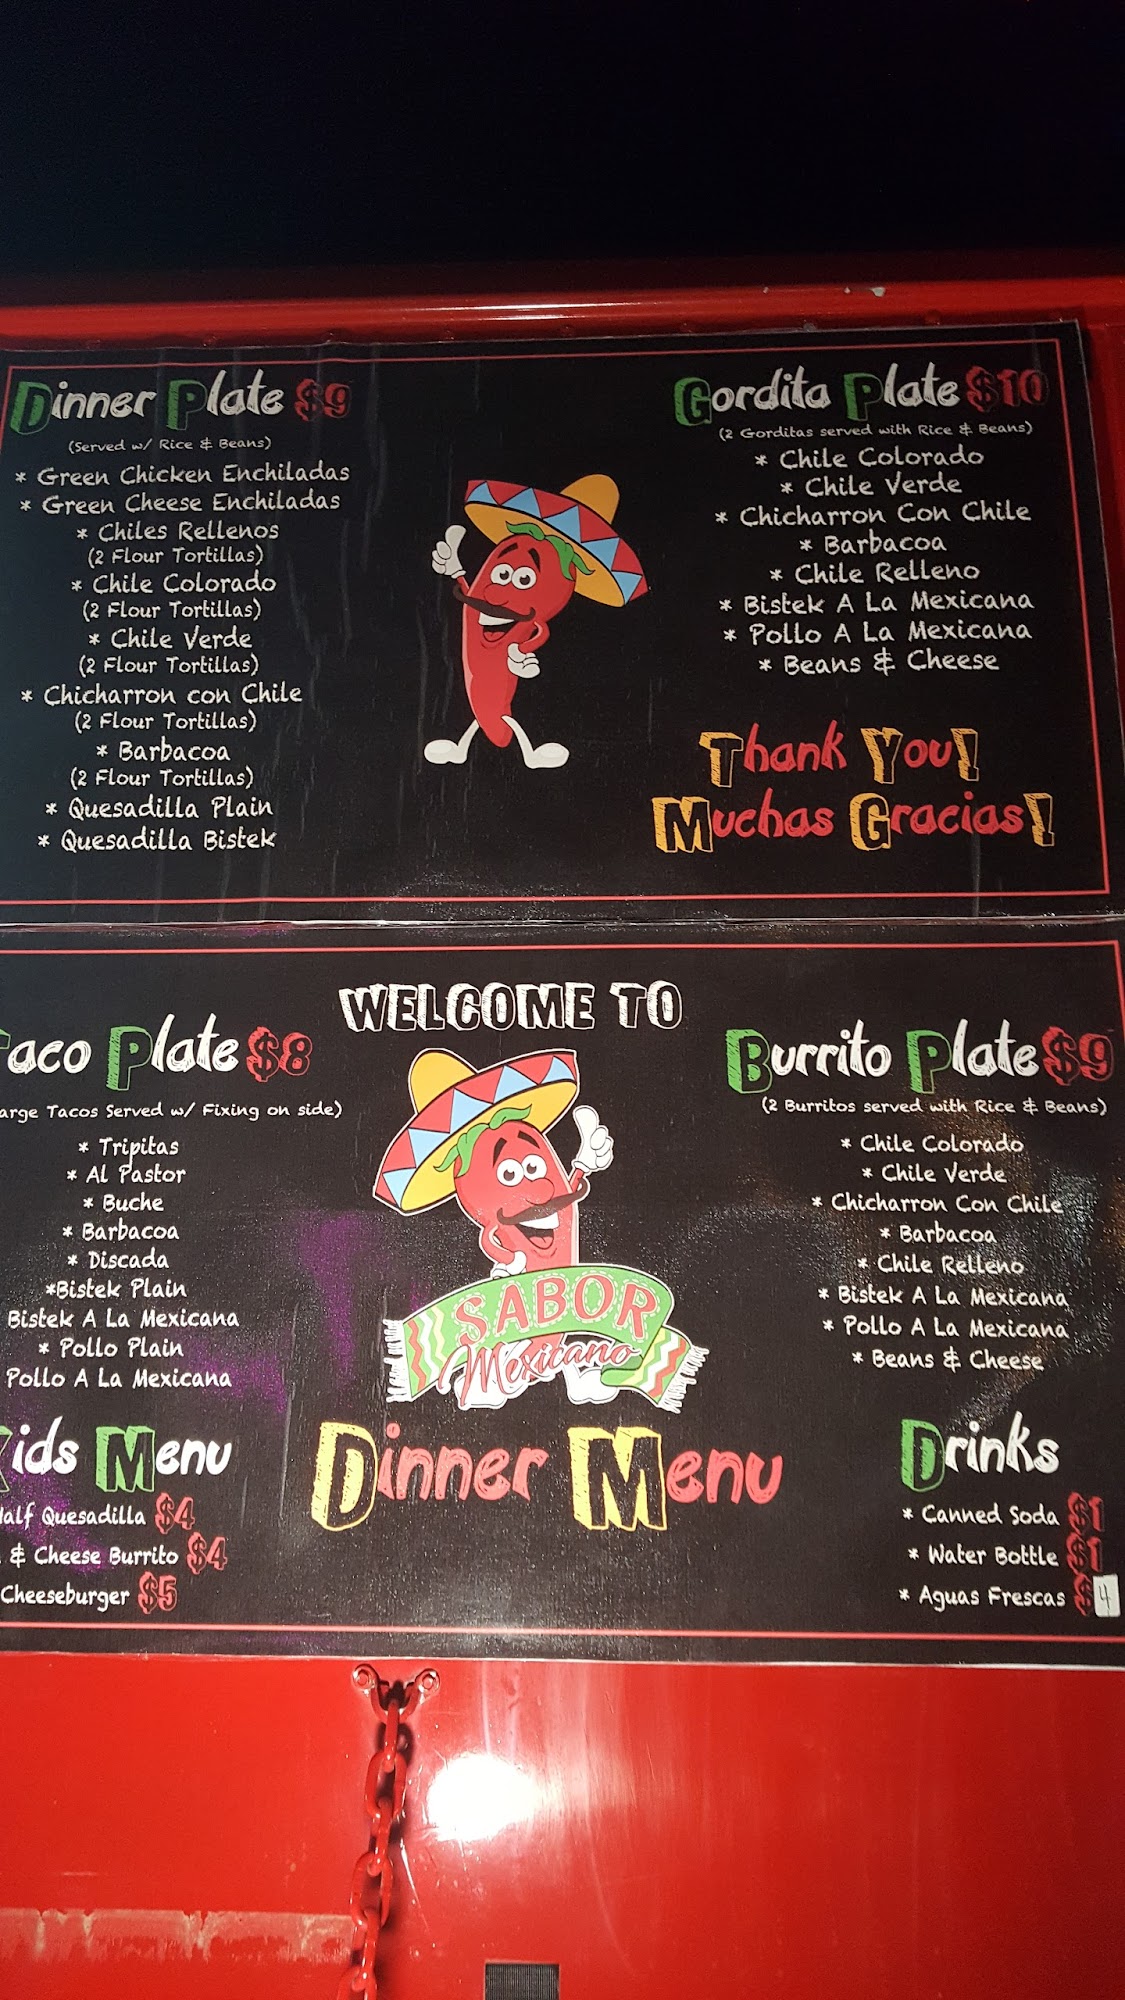 Dinner Plate $9
(Served w/ Rice & Beans)
* Green Chicken Enchiladas
* Green Cheese Enchiladas
* Chiles Rellenos
(2 Flour Tortillas)
* Chile Colorado
(2 Flour Tortillas)
* Chile Verde
(2 Flour Tortillas)
* Chicharron con Chile
(2 Flour Tortillas)
* Barbacoa
(2 Flour Tortillas)
* Quesadilla Plain
* Quesadilla Bistek
Gordita Plate $10
(2 Gorditas served with Rice & Beans)
* Chile Colorado
* Chile Verde
* Chicharron Con Chile
* Barbacoa
* Chile Relleno
* Bistek A La Mexicana
* Pollo A La Mexicana
* Beans & Cheese
Thank You!
Muchas Gracias!
WELCOME TO
SABOR
Mexicano
Dinner Menu
Taco Plate $8
arge Tacos Served w/ Fixing on side)
* Tripitas
* Al Pastor
* Buche
* Barbacoa
* Discada
*Bistek Plain
Bistek A La Mexicana
* Pollo Plain
Pollo A La Mexicana
Kids Menu
Half Quesadilla $4
& Cheese Burrito $4
Cheeseburger $5
Burrito Plate $9
(2 Burritos served with Rice & Beans)
* Chile Colorado
* Chile Verde
* Chicharron Con Chile
* Barbacoa
* Chile Relleno
* Bistek A La Mexicana
* Pollo A La Mexicana
* Beans & Cheese
Drinks
* Canned Soda $1
* Water Bottle $1
* Aguas Frescas $4